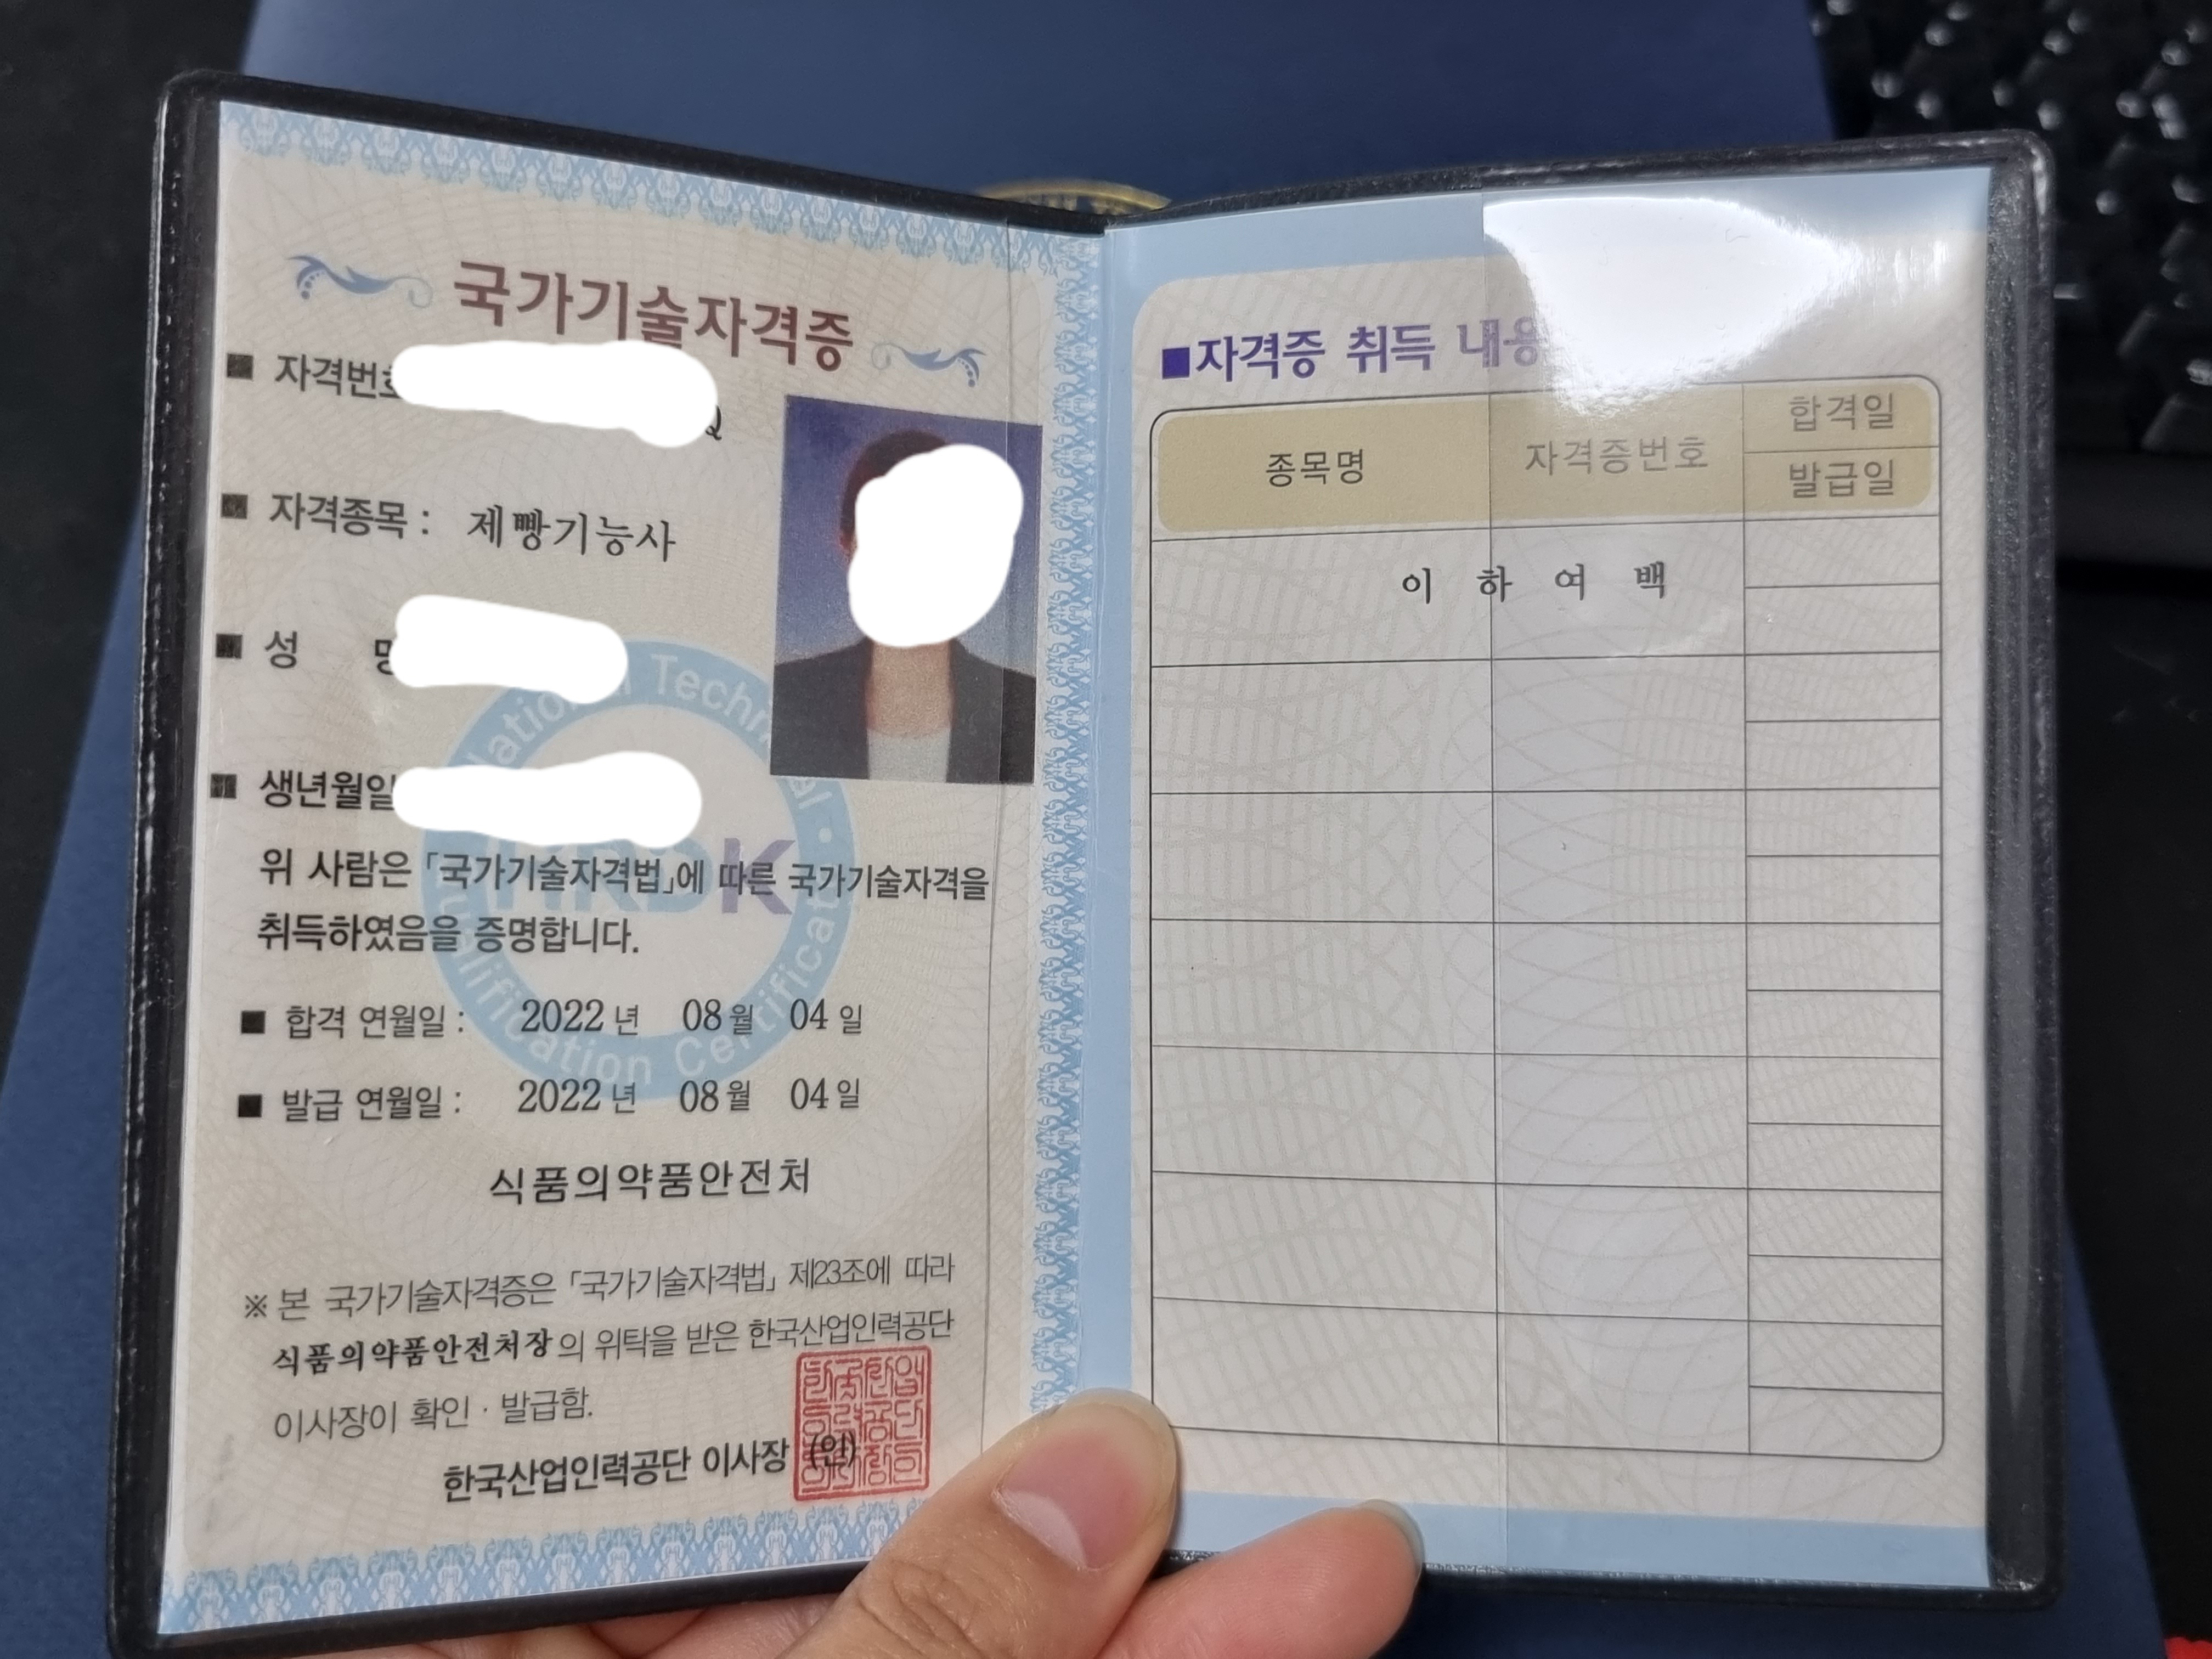 국가기술자격증
■ 자격번호
■ 자격종목 : 제빵기능사
■ 성 명
■ 생년월일
위 사람은 「국가기술자격법」에 따른 국가기술자격을
취득하였음을 증명합니다.
■ 합격 연월일 : 2022 년 08 월 04 일
■ 발급 연월일 : 2022 년 08 월 04 일
식품의약품안전처
※ 본 국가기술자격증은 「국가기술자격법」 제23조에 따라
식품의약품안전처장의 위탁을 받은 한국산업인력공단
이사장이 확인 · 발급함.
한국산업인력공단 이사장 (인)
HRDK
Qualification Certificate
■자격증 취득 내용
종목명 자격증번호 합격일
발급일
이 하 여 백